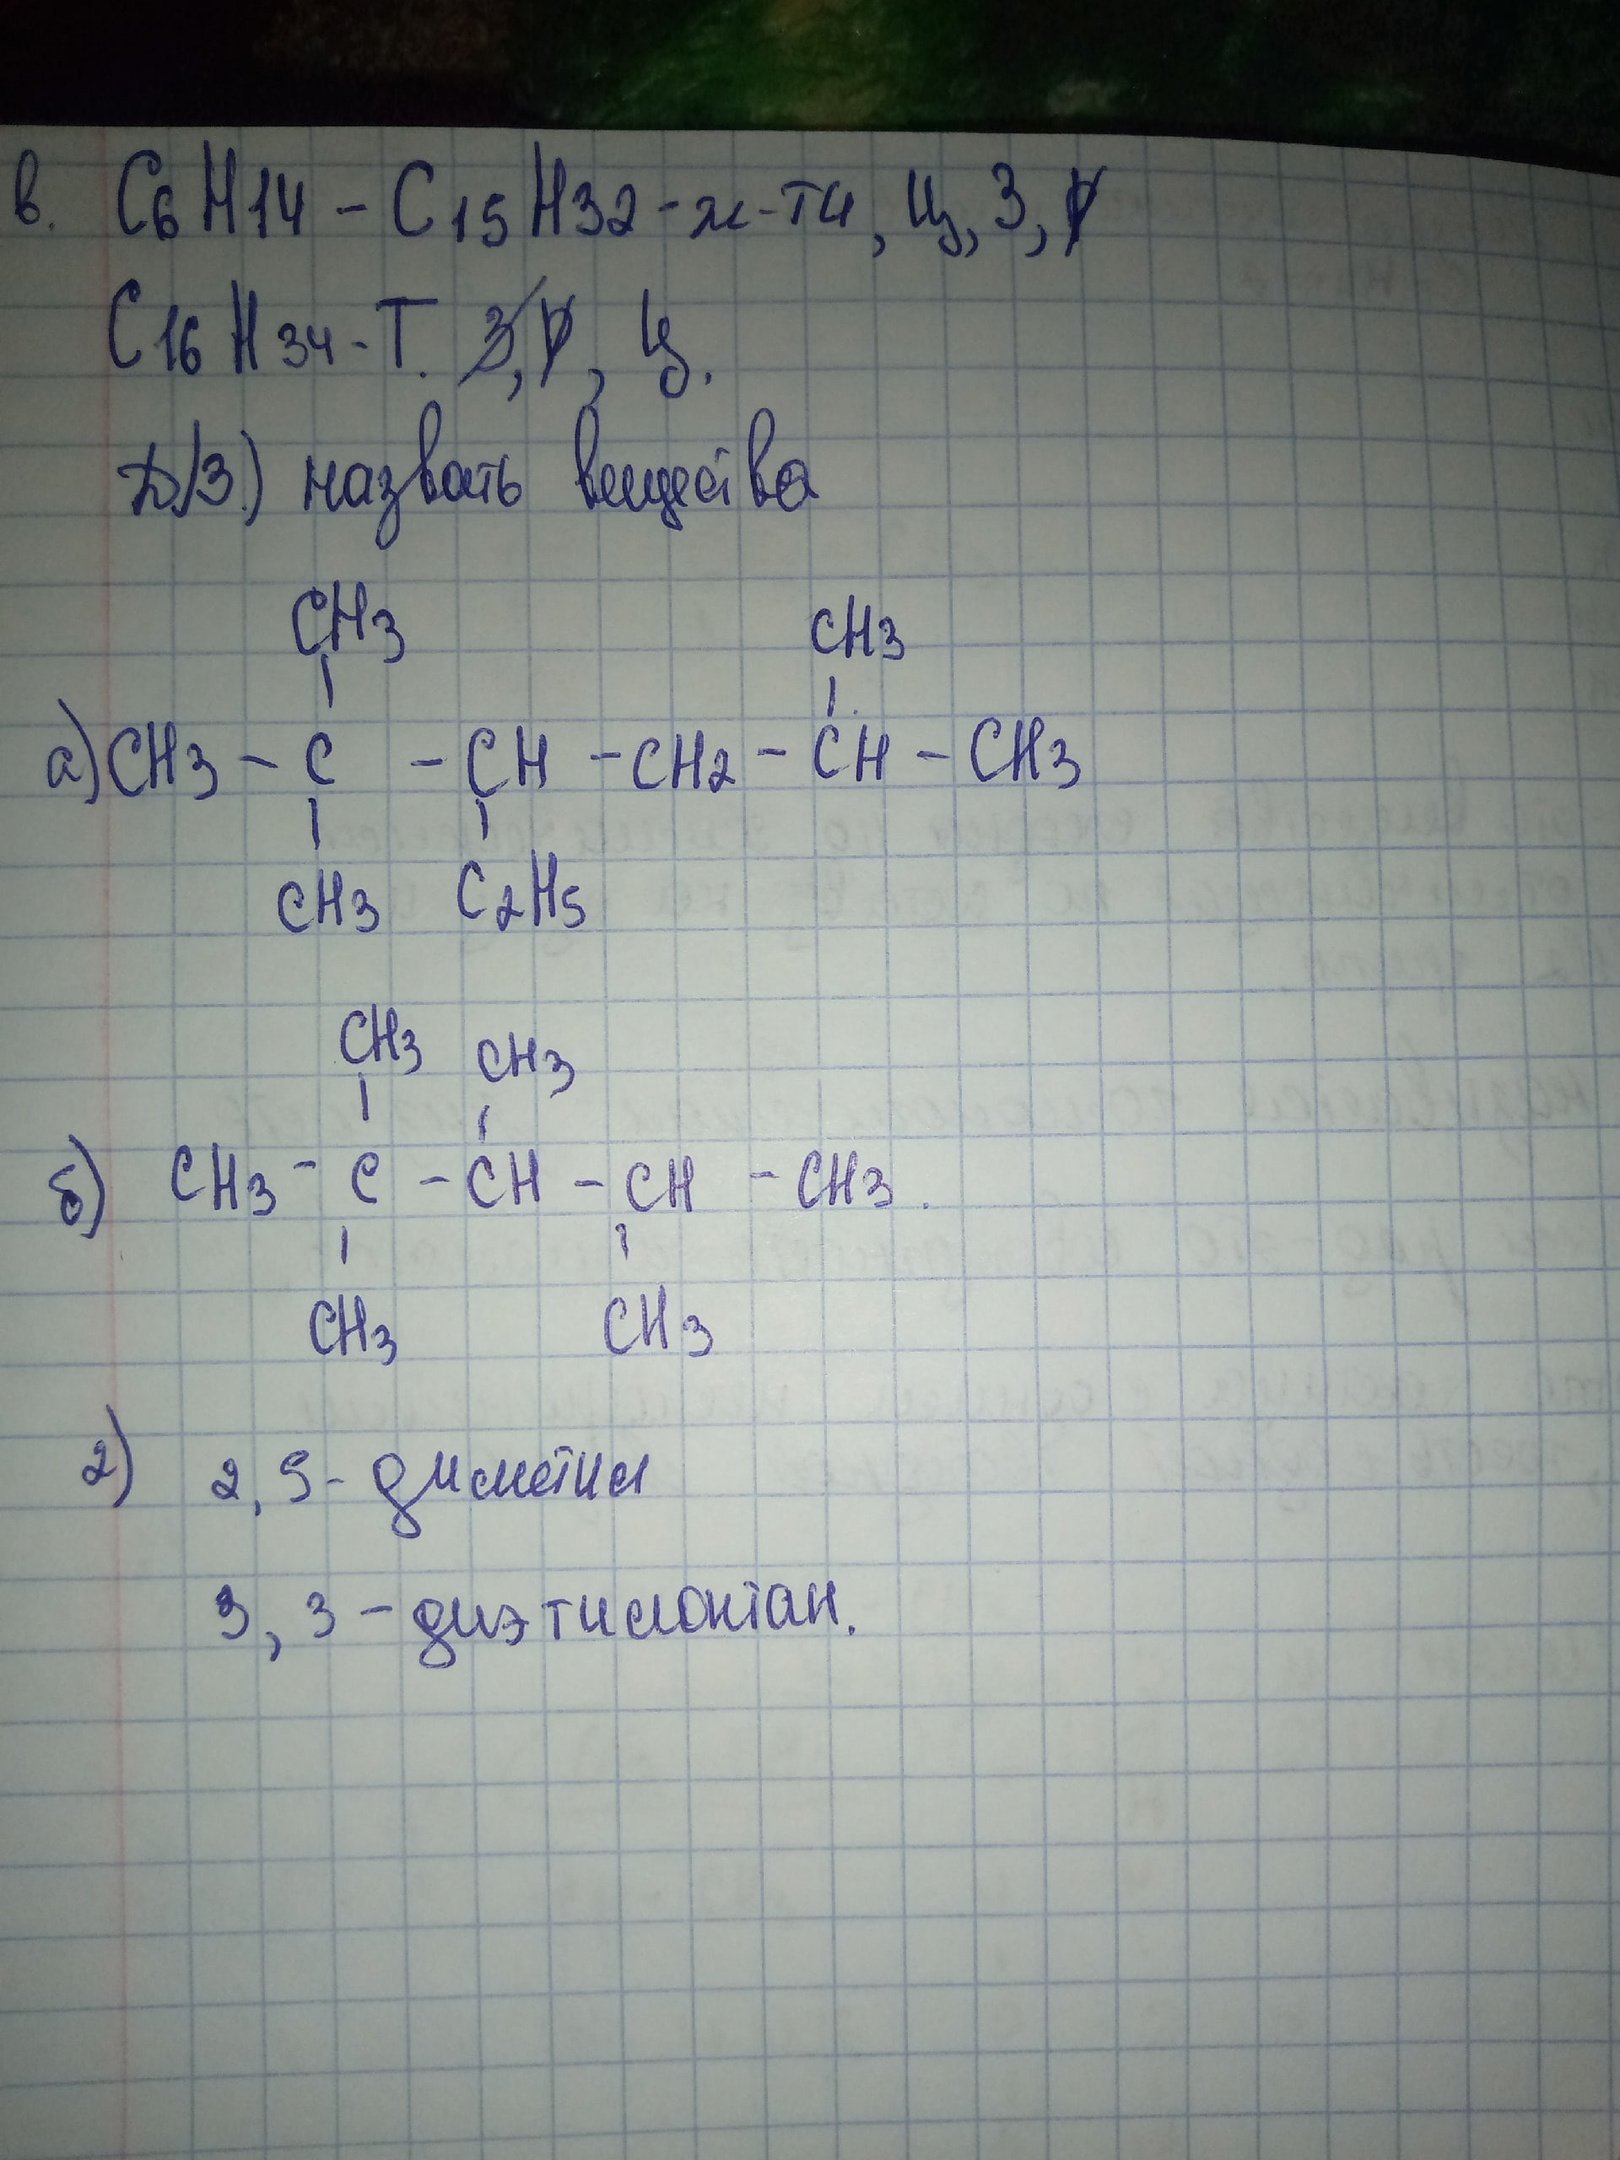 в. C6H14 - C15H32 - ж-ти, Ц, З,
C16H34 - Т. , Ц.
Д/З.) назвать вещества
CH3 CH3
а) CH3 - C - CH - CH2 - CH - CH3
CH3 C2H5
CH3 CH3
б) CH3 - C - CH - CH - CH3.
CH3 CH3
2) 2, 5 - диметил
3, 3 - диэтилоктан.